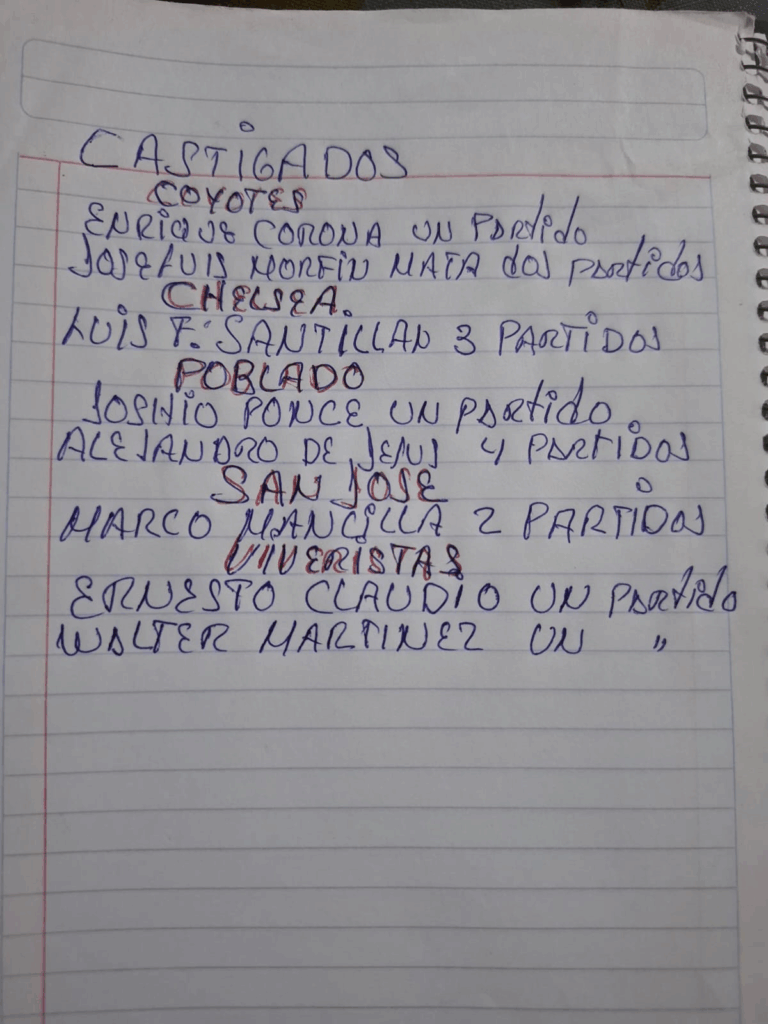 CASTIGADOS
COYOTES
ENRIQUE CORONA UN PARTIDO
JOSE LUIS MORFIN MATA dos PARTIDOS
CHELSEA.
LUIS F. SANTILLAN 3 PARTIDOS
POBLADO
JOSHIO PONCE UN PARTIDO.
ALEJANDRO DE JESUS 4 PARTIDOS
SAN JOSE
MARCO MANCILLA 2 PARTIDOS
VIVERISTAS
ERNESTO CLAUDIO UN PARTIDO
WALTER MARTINEZ UN "